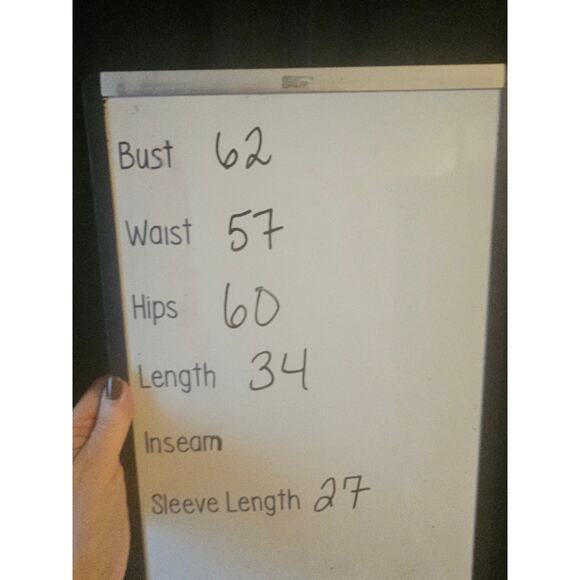 Bust 62
Waist 57
Hips 60
Length 34
Inseam
Sleeve Length 27